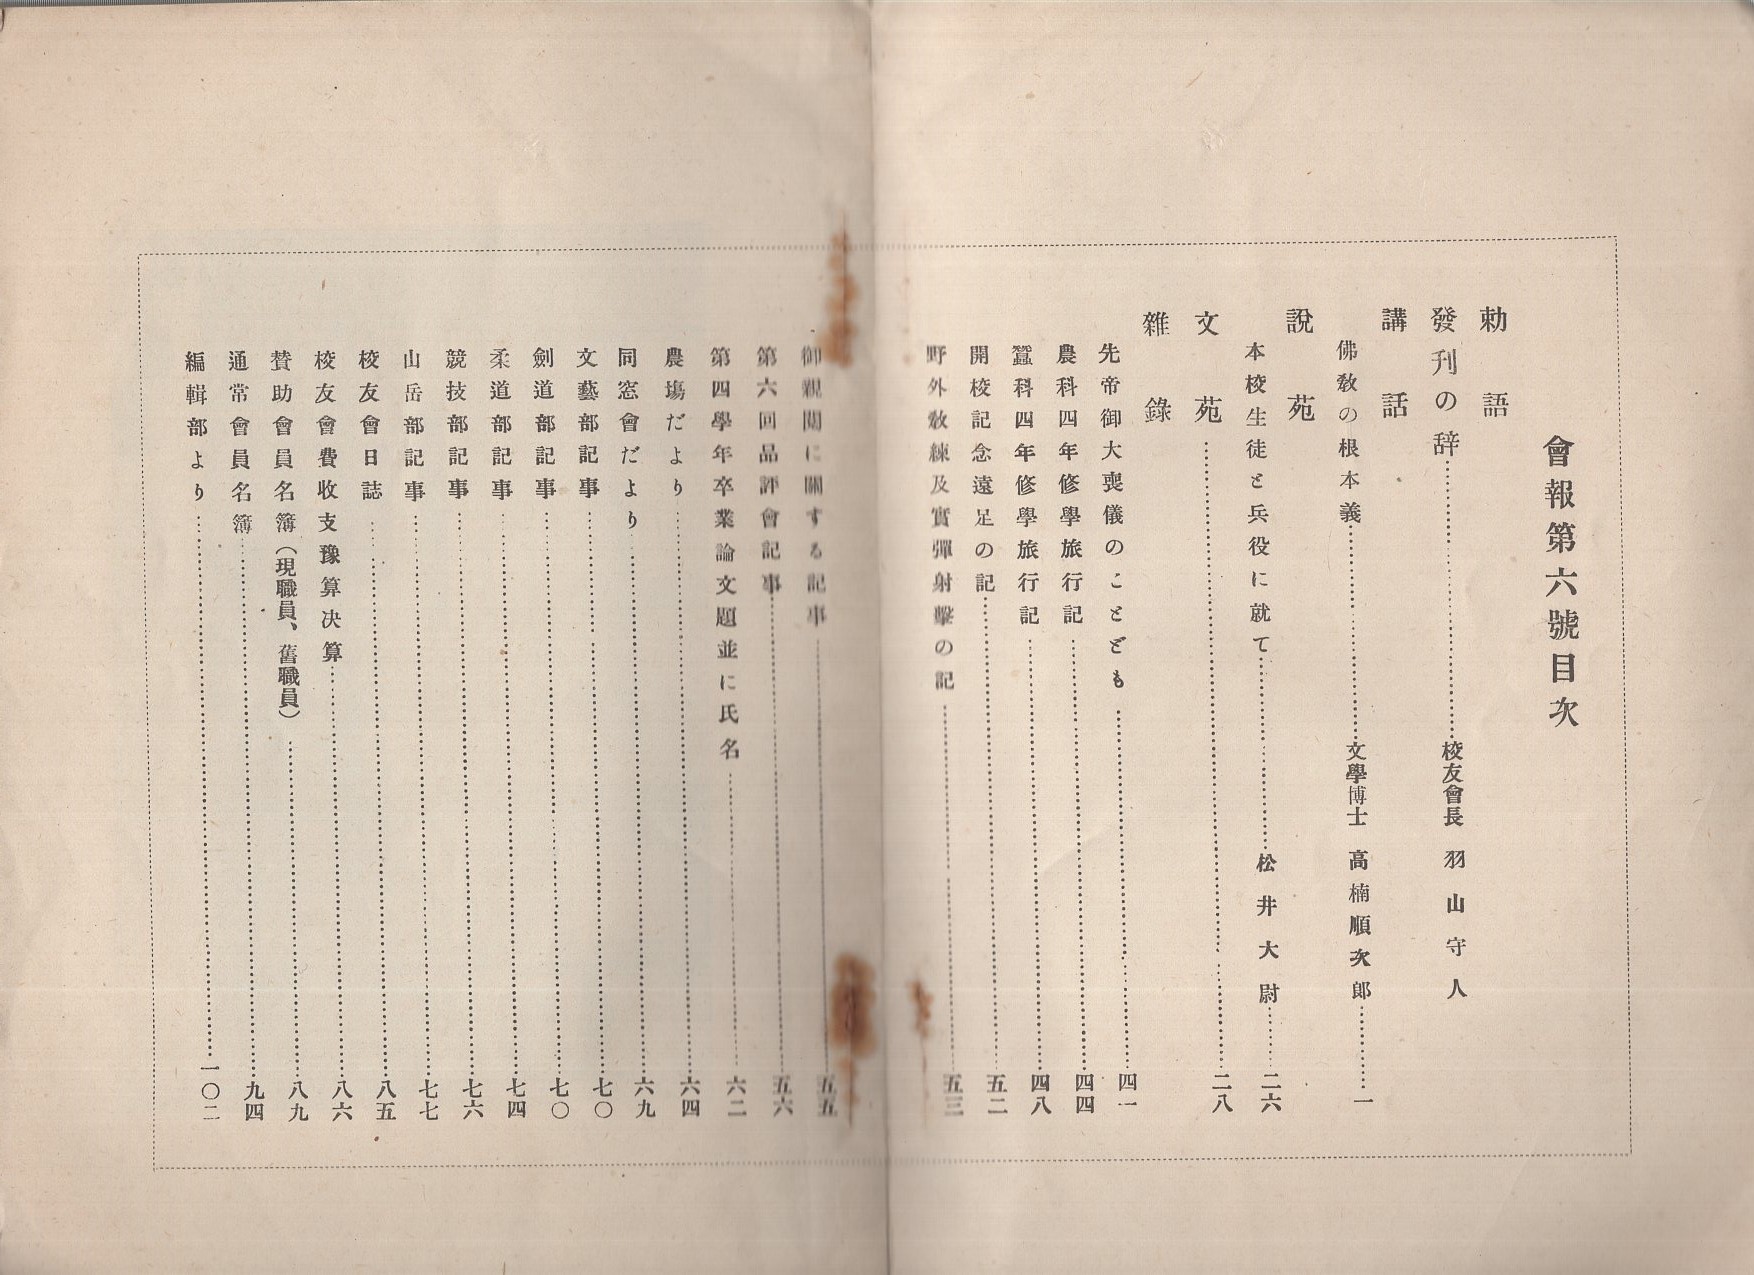 會報第六號目次
勅語
發刊の辞……校友會長 羽山守人
講話
佛敎の根本義……文學博士 高楠順次郎……一
說苑
本校生徒と兵役に就て……松井大尉……二六
文苑……二八
雜錄
先帝御大喪儀のことども……四一
農科四年修學旅行記……四四
蠶科四年修學旅行記……四八
開校記念遠足の記……五二
野外敎練及實彈射擊の記……五三
御親閱に關する記事……五五
第六回品評會記事……五六
第四學年卒業論文題並に氏名……六二
農塲だより……六四
同窓會だより……六九
文藝部記事……七〇
劍道部記事……七〇
柔道部記事……七四
競技部記事……七六
山岳部記事……七七
校友會日誌……八五
校友會費收支豫算決算……八六
賛助會員名簿（現職員、舊職員）……八九
通常會員名簿……九四
編輯部より……一〇二